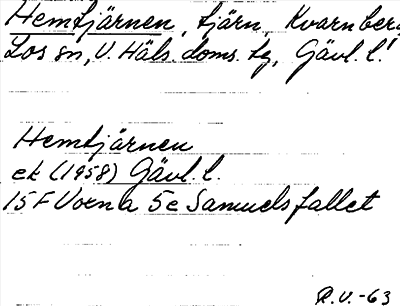 Hemtjärnen, tjärn, Kvarnberg
Los sn, V. Häls. doms. tg, Gävl. l.
Hemtjärnen
ek (1958) Gävl. l.
15 F Voxna 5e Samuelsfallet
R.V.-63